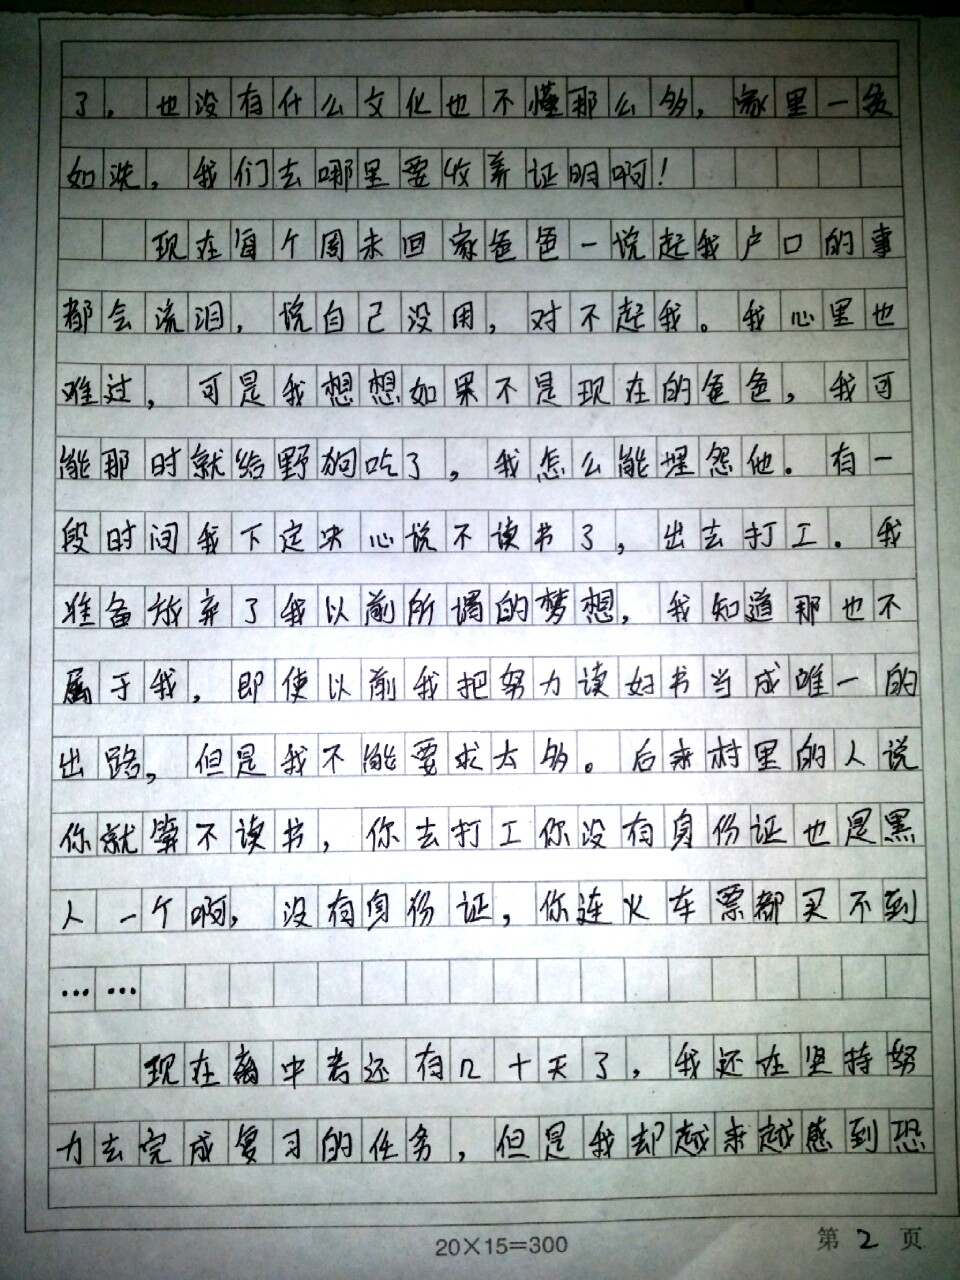 了，也没有什么文化也不懂那么多，家里一贫
如洗，我们去哪里要收养证明啊！
现在每个周末回家爸爸一说起我户口的事
都会流泪，说自己没用，对不起我。我心里也
难过，可是我想想如果不是现在的爸爸，我可
能那时就给野狗吃了，我怎么能埋怨他。有一
段时间我下定决心说不读书了，出去打工。我
准备放弃了我以前所谓的梦想，我知道那也不
属于我，即使以前我把努力读好书当成唯一的
出路，但是我不能要求太多。后来村里的人说
你就算不读书，你去打工你没有身份证也是黑
人一个啊，没有身份证，你连火车票都买不到
……
现在离中考还有几十天了，我还在坚持努
力去完成复习的任务，但是我却越来越感到恐
20×15=300
第2页